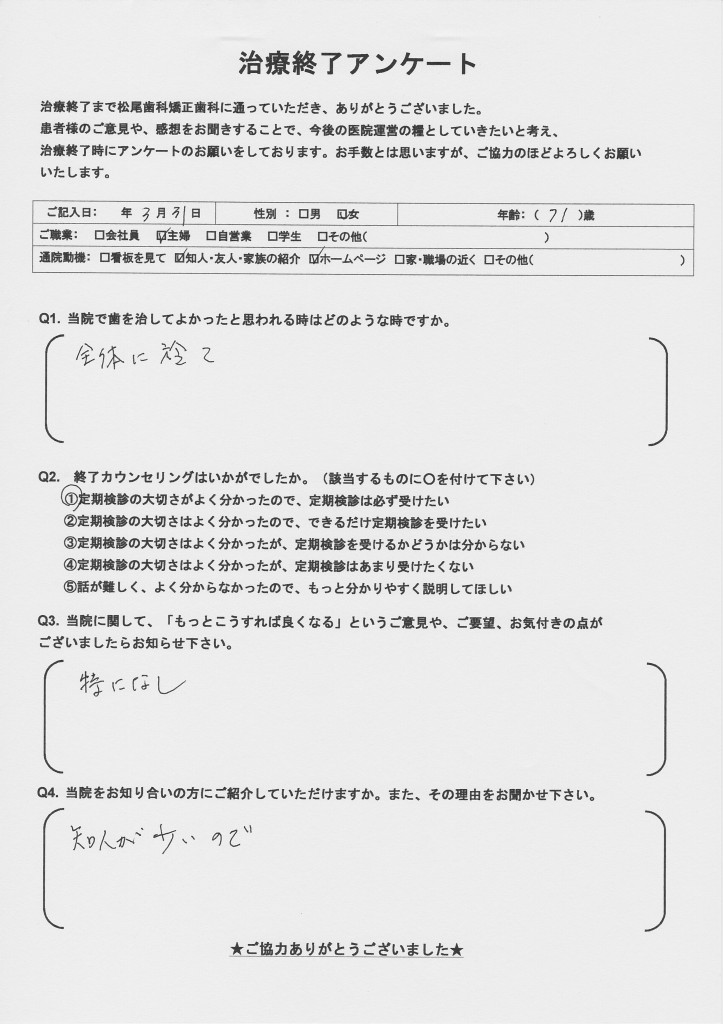 治療終了アンケート
治療終了まで松尾歯科矯正歯科に通っていただき、ありがとうございました。
患者様のご意見や、感想をお聞きすることで、今後の医院運営の糧としていきたいと考え、
治療終了時にアンケートのお願いをしております。お手数とは思いますが、ご協力のほどよろしくお願い
いたします。
ご記入日： 年 3 月 31 日 性別 ： □男 ☑女 年齢：（ 71 ）歳
ご職業： □会社員 ☑主婦 □自営業 □学生 □その他（ ）
通院動機： □看板を見て ☑知人・友人・家族の紹介 ☑ホームページ □家・職場の近く □その他（ ）
Q1. 当院で歯を治してよかったと思われる時はどのような時ですか。
全体に
Q2. 終了カウンセリングはいかがでしたか。（該当するものに〇を付けて下さい）
①定期検診の大切さがよく分かったので、定期検診は必ず受けたい
②定期検診の大切さはよく分かったので、できるだけ定期検診を受けたい
③定期検診の大切さはよく分かったが、定期検診を受けるかどうかは分からない
④定期検診の大切さはよく分かったが、定期検診はあまり受けたくない
⑤話が難しく、よく分からなかったので、もっと分かりやすく説明してほしい
Q3. 当院に関して、「もっとこうすれば良くなる」というご意見や、ご要望、お気付きの点が
ございましたらお知らせ下さい。
特になし
Q4. 当院をお知り合いの方にご紹介していただけますか。また、その理由をお聞かせ下さい。
知人が少いので
★ご協力ありがとうございました★